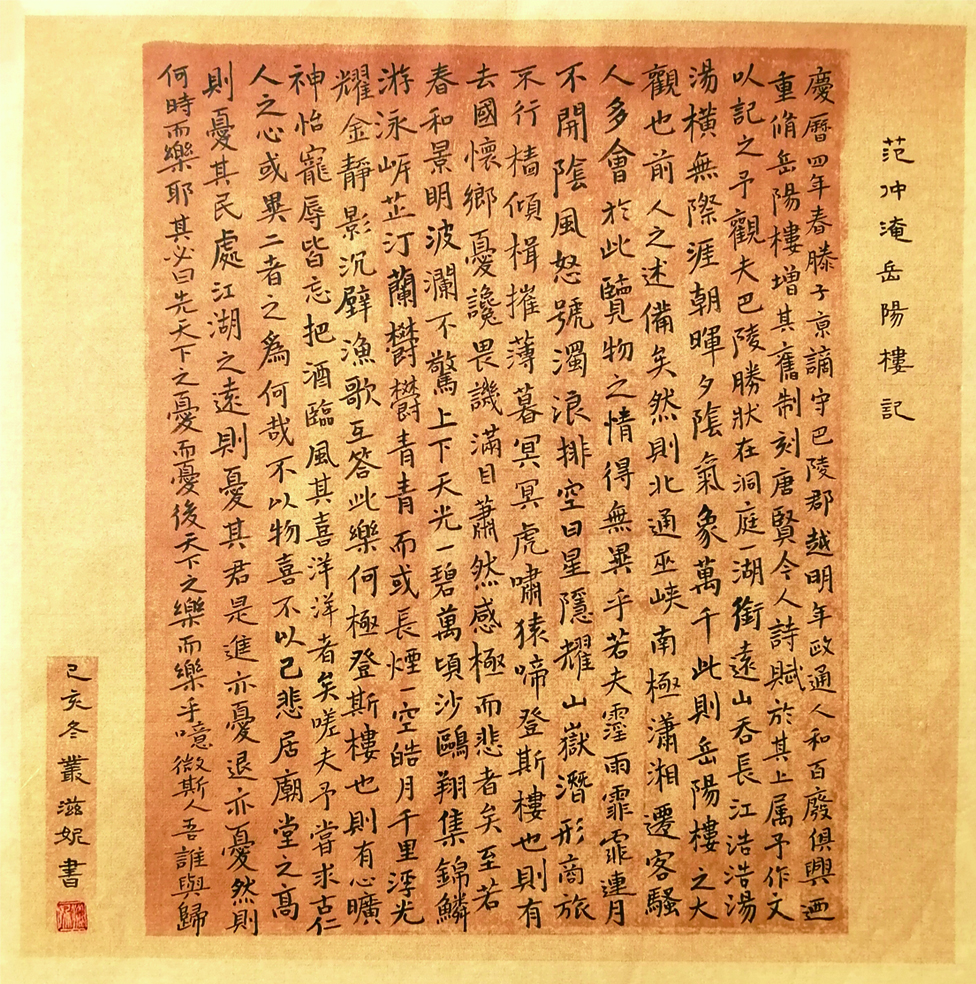 范仲淹岳陽樓記
慶曆四年春滕子亰謫守巴陵郡越明年政通人和百廢俱興迺
重脩岳陽樓增其舊制刻唐賢今人詩賦於其上属予作文
以記之予觀夫巴陵勝狀在洞庭一湖銜遠山吞長江浩浩湯
湯橫無際涯朝暉夕陰氣象萬千此則岳陽樓之大
觀也前人之述備矣然則北通巫峽南極瀟湘遷客騷
人多會於此覽物之情得無異乎若夫霪雨霏霏連月
不開陰風怒號濁浪排空日星隱耀山嶽潛形商旅
不行檣傾楫摧薄暮冥冥虎嘯猿啼登斯樓也則有
去國懷鄉憂讒畏譏滿目蕭然感極而悲者矣至若
春和景明波瀾不驚上下天光一碧萬頃沙鷗翔集錦鱗
游泳岸芷汀蘭欝欝青青而或長煙一空皓月千里浮光
耀金靜影沉壁漁歌互答此樂何極登斯樓也則有心曠
神怡寵辱皆忘把酒臨風其喜洋洋者矣嗟夫予嘗求古仁
人之心或異二者之為何哉不以物喜不以己悲居廟堂之高
則憂其民處江湖之遠則憂其君是進亦憂退亦憂然則
何時而樂耶其必曰先天下之憂而憂後天下之樂而樂乎噫微斯人吾誰與歸
己亥冬叢滋妮書